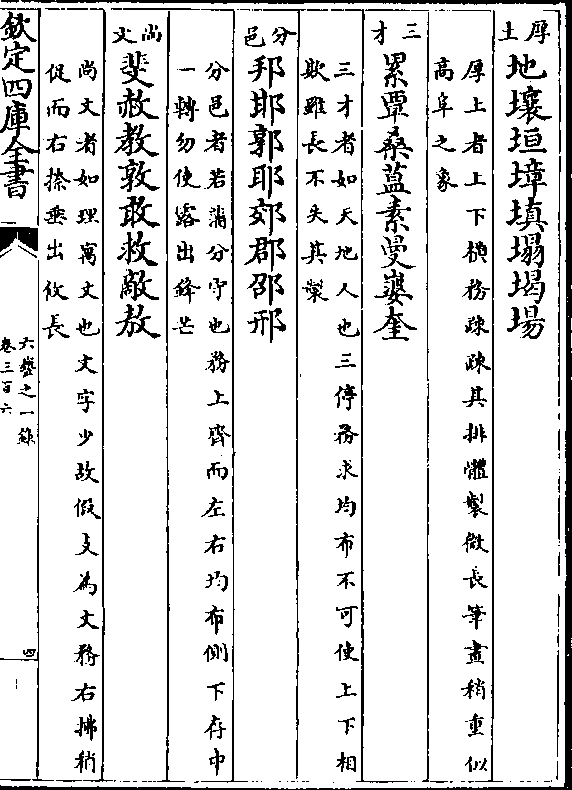 厚土
地壤垣墇填塌堨場
厚土者上下橫務疎疎其排體製微長筆畫稍重似
高阜之象
三才
累覃桑葢素曼㜑奎
三才者如天地人也三停務求均布不可使上下相
欺雖長不失其製
分邑
邦邯郭耶郊郡邵邢
分邑者若滿分守也務上齊而左右均布側下存中
一轉勿使露出鋒芒
尚文
斐赦教敦敢救敵敖
尚文者如理寓文也文字少故假攴為文務右拂稍
促而右捺垂出攸長
欽定四庫全書
六藝之一錄
卷三百六
四